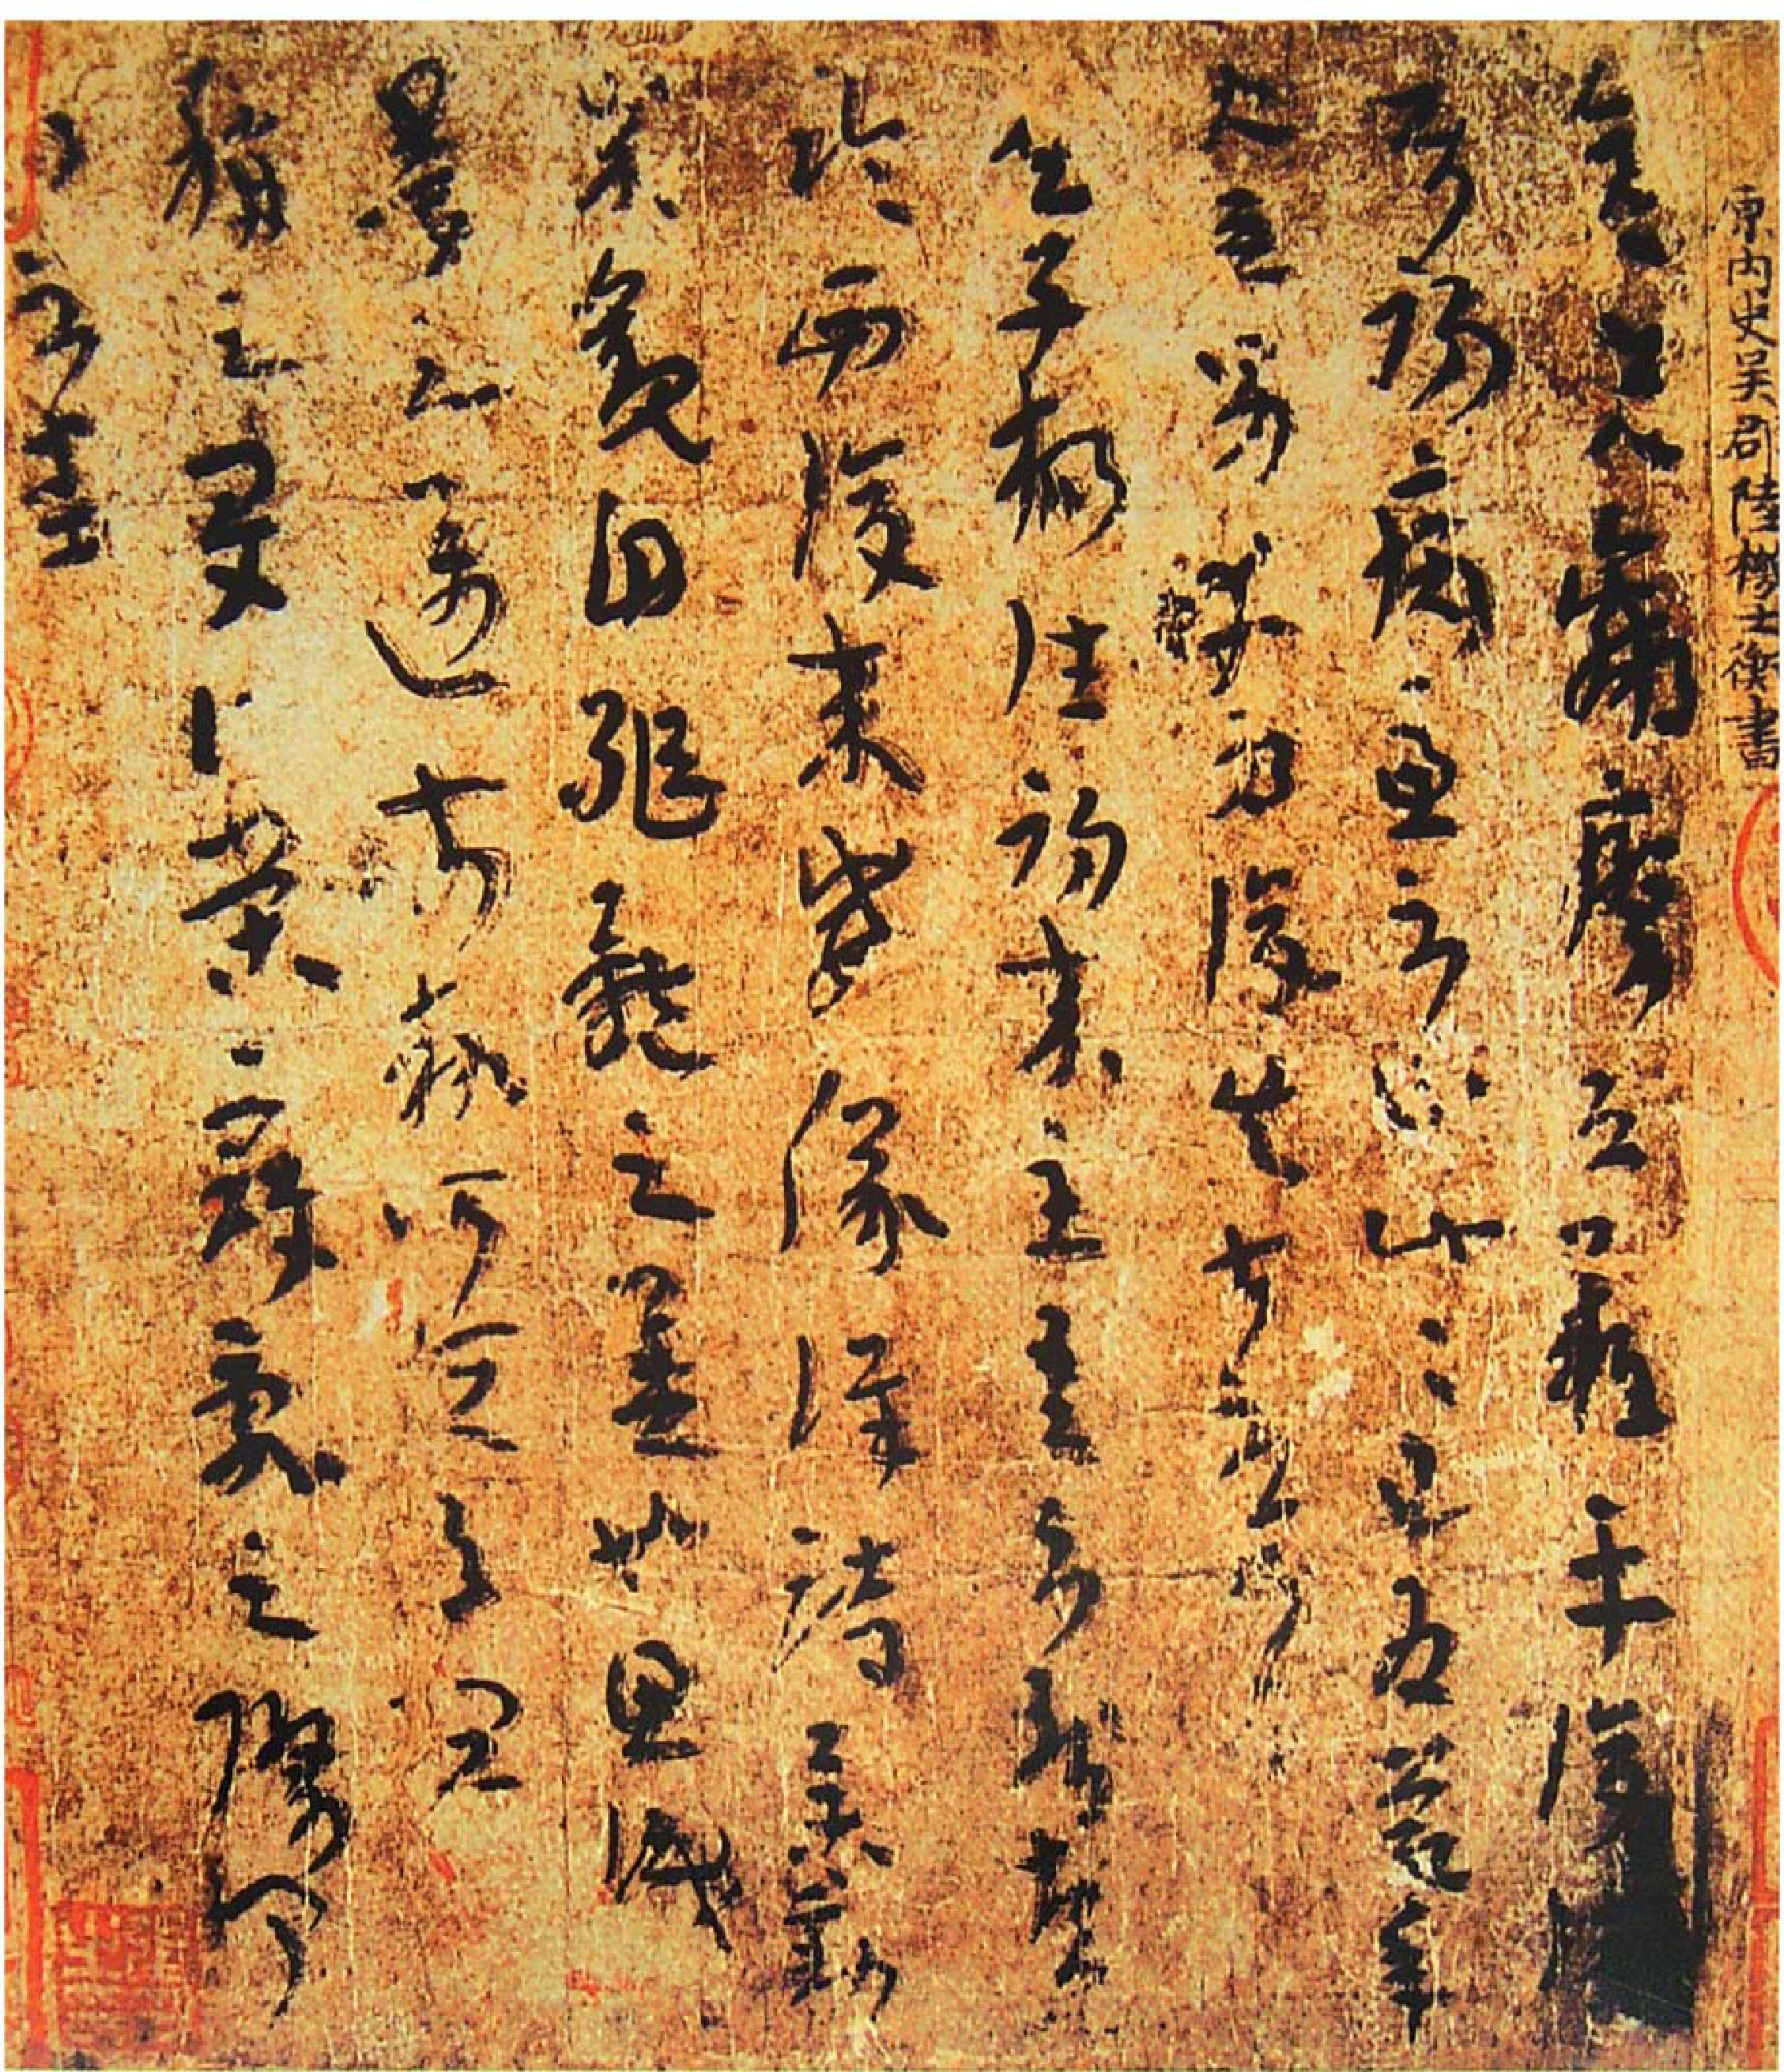 原內史吴郡陸機士衡書
彦先羸瘵恐難平復
初病慮不止此此已為慶承
使唯男幸為復失前憂耳
吳子楊往初來主吾不能盡
臨西復來威儀詳跱舉動成
觀自軀體之美也思識
量之邁前勢所恒有宜
稱之夏伯榮寇亂之際聞
問不悉